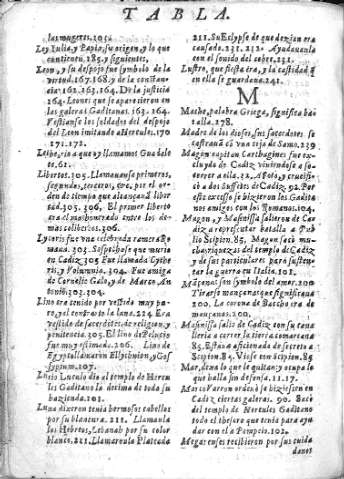 TABLA.
las mugeres. 103.
Ley Iulia, y Papia, su origen, y lo que
contienen. 185. y siguientes.
Leon, y su despojo fue symbolo de la
virtud. 167. 168. y de la constan
cia. 162. 163. 164. De la justicia
164. Leones que se aparecieron en
las galeras Gaditanas. 163. 164.
Vestianse los soldados del despojo
del Leon imitando a Hercules. 170
171. 172.
Lethe, rio a que oy llamamos Gua bele
te. 61.
Libertos. 305. Llamauanse primeros,
segundos, terceros, &c. por el or-
den de tiempo que alcançauã liber
tad. 305. 306. El primer liberto
era el mas honrado entre los de-
mas colibertos. 306.
Lycoris fue vna celebrada ramera Ro
mana. 303. Sospechase que murio
en Cadiz 303. Fue llamada Cythe
ris, y Volumnia. 304. Fue amiga
de Cornelio Galo, y de Marco An
tonio. 303. 304.
Lino era tenido por vestido muy pu-
ro, y el contrario la lana. 214. Era
vestido de sacerdotes de religion, y
penitencia. 305. El lino de Pelusio
fue muy estimado. 206. Lino de
Egypto llamaron Ellychnion, y Gos
sypium. 107.
Lucio Luculo dio al templo de Hercu
les Gaditano la decima de toda su
hazienda. 101.
Luna dixeron tenia hermosos cabellos
por su blantura. 211. Llamauã
los Hebreos, Lebanah por su color
blanco. 211. Llamaronla Plateada
211. Su Eclypse de que dezian era
causado. 231. 232. Ayudauanla
con el sonido del cobre. 231.
Lustro, que fiesta era, y la castidad q̃
en ella se guardaua. 241.
M
Mache, palabra Griega, significa ba
talla. 278.
Madre de los dioses, sus sacerdotes se
castrauã cõ vna teja de Samo. 239
Magon capitan Carthagines fue ex-
cluydo de Cadiz viniendose a so-
correr a ella. 82. Açoto, y crucifi-
cò a dos Suffetes de Cadiz 92. Por
este excesso se hizieron los Gadita
nos amigos con los Romanos. 104.
Magon, y Masinissa salieron de Ca-
diz a representar batalla a Publio
Scipion. 85. Magon sacò mu-
chas riquezas del templo de Cadiz
y de sus particulares para susten-
tar la guerra en Italia. 101.
Mãçanas, son symbolo del amor. 200
Tirarse mançanas que significaua
200. La corona de Baccho era de
mançanas. 200.
Masinissa salio de Cadiz con su caua
lleria a correr la tierra comarcana
85. Estaua aficionado de secreto a
Scipion. 84. Viose con Scipion. 85
Mar, dexa lo que le quitan, y ocupa lo
que halla sin defensa. 11. 17.
Marco Varron ordenò se hiziessen en
Cadiz ciertas galeras. 90. Sacò
del templo de Hercules Gaditano
todo el thesoro que tenia para ayu
dar con el a Pompeio. 102.
Megarenses recibieron por sus ciuda
danos